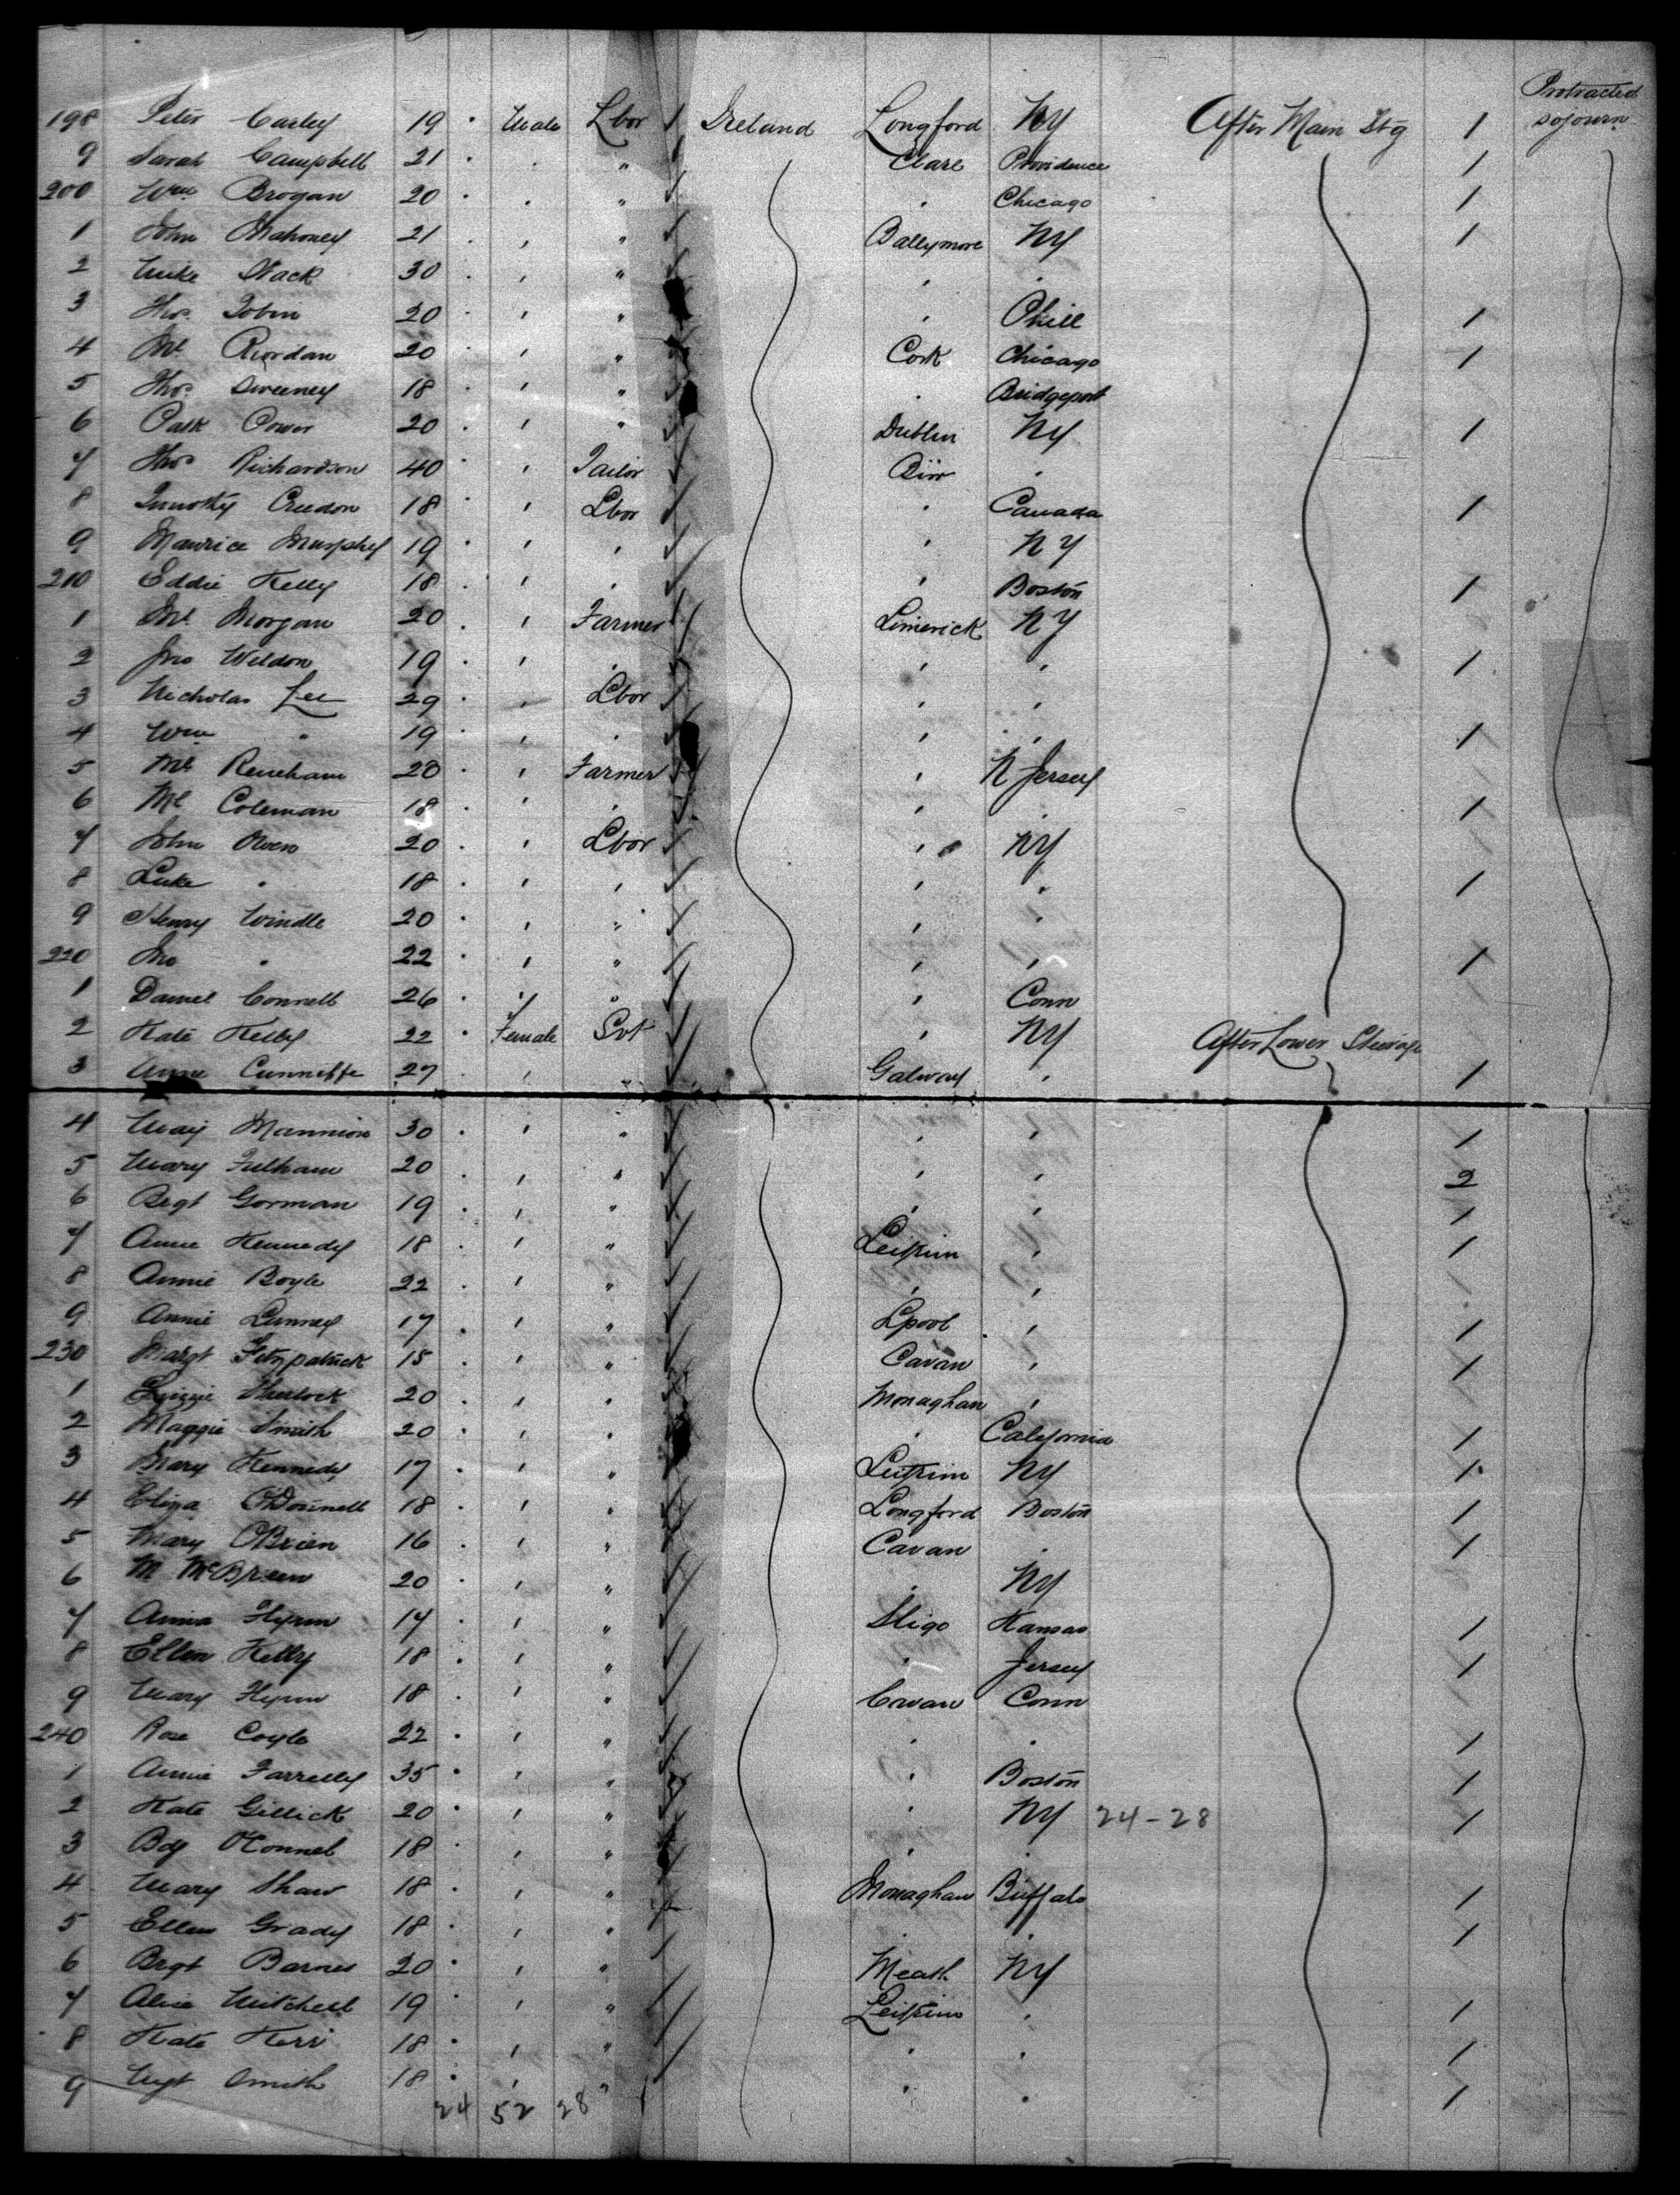 Protracted
198 Peter Carley 19 · Male Lbor / Ireland Longford NY After Main Stg 1 sojourn
9 Sarah Campbell 21 · · " Clare Providence 1
200 Wm Brogan 20 · · " " Chicago 1
1 John Mahoney 21 · " " Ballymore NY 1
2 Mike Stack 30 · " " " "
3 Thos Tobin 20 · " " " Phill 1
4 Ml Riordan 20 · " " Cork Chicago 1
5 Thos Sweeney 18 · " " " Bridgeport
6 Patk Power 20 · " " Dublin NY 1
7 Thos Richardson 40 · " Tailor Birr "
8 Timothy Creedon 18 · " Lbor " Canada 1
9 Maurice Murphy 19 · " " " NY
210 Eddie Kelly 18 · " " " Boston 1
1 Ml Morgan 20 · " Farmer Limerick NY
2 Jno Weldon 19 · " " " " 1
3 Nicholas Lee 29 · " Lbor " "
4 Wm " 19 · " " " " 1
5 Ml Renehan 20 · " Farmer " N Jersey
6 Ml Coleman 18 · " " " " 1
7 John Owens 20 · " Lbor " NY
8 Luke " 18 · " " " " 1
9 Henry Windle 20 · " " " "
220 Jno " 22 · " " " " 1
1 Daniel Connell 26 · " " " Conn
2 Kate Kelly 22 · Female Svt " NY After Lower Steerage
3 Annie Cunniffe 27 · " " Galway " 1
4 Mary Mannion 30 · " " " " 1
5 Mary Fulham 20 · " " " " 2
6 Begt Gorman 19 · " " " " 1
7 Annie Kennedy 18 · " " Leitrim " 1
8 Annie Boyle 22 · " " " "
9 Annie Lunney 17 · " " Lpool " 1
230 Margt Fitzpatrick 15 · " " Cavan " 1
1 Lizzie Sherlock 20 · " " Monaghan "
2 Maggie Smith 20 · " " " California 1
3 Mary Kennedy 17 · " " Leitrim NY 1
4 Eliza O'Donnell 18 · " " Longford Boston 1
5 Mary OBrien 16 · " " Cavan " 1
6 M McBreen 20 · " " " NY
7 Annie Flynn 14 · " " Sligo Kansas 1
8 Ellen Kelly 18 · " " " Jersey 1
9 Mary Flynn 18 · " " Cavan Conn
240 Rose Coyle 22 · " " " " 1
1 Annie Farrelly 35 · " " " Boston 1
2 Kate Gillick 20 · " " " NY 24-28 1
3 Bdg OConnel 18 · " " " "
4 Mary Shaw 18 · " " Monaghan Buffalo 1
5 Ellen Grady 18 · " " " " 1
6 Brgt Barnes 20 · " " Meath NY
7 Alice Mitchell 19 · " " Leitrim " 1
8 Kate Kerr 18 · " " " " 1
9 Mgt Smith 18 · " " " " 1
24 52 28